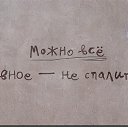 Можно всё
вное — не спалит